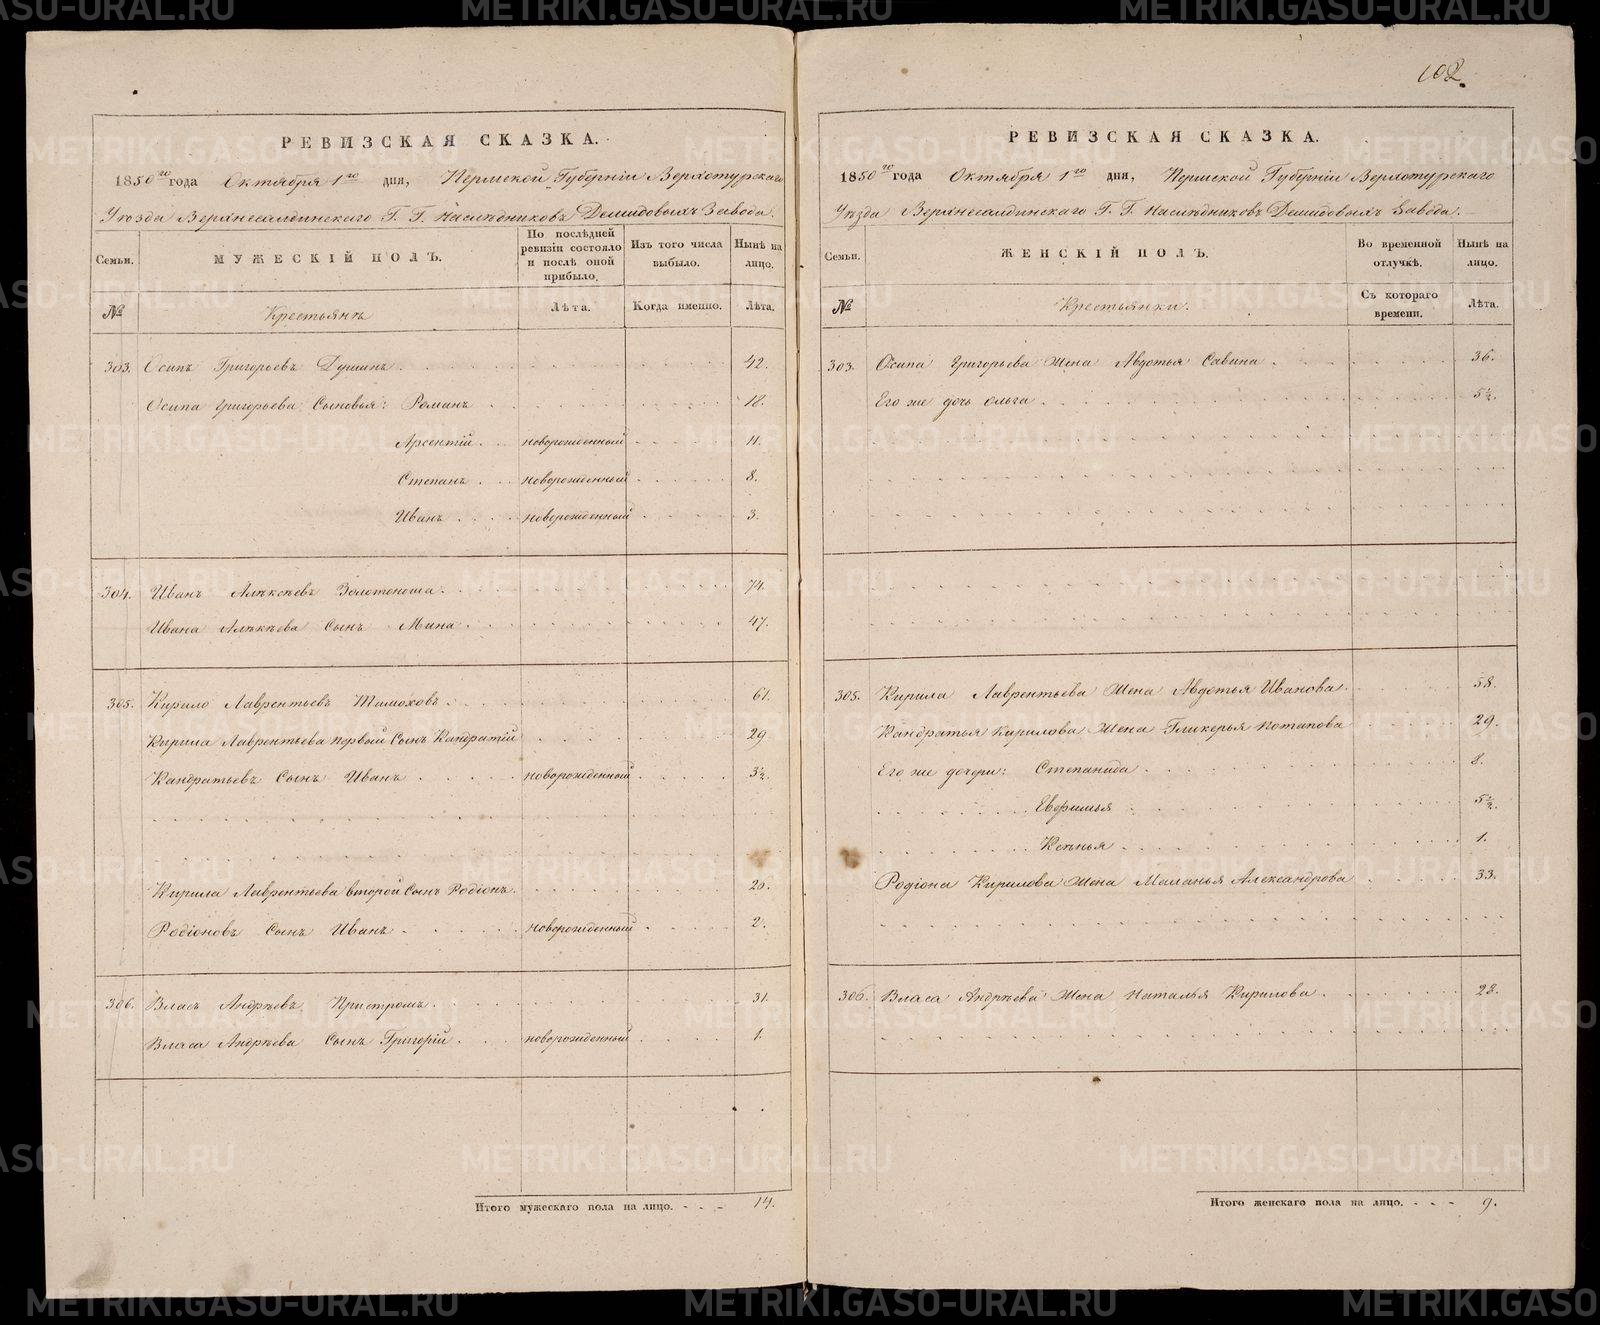 102.
РЕВИЗСКАЯ СКАЗКА.
1850го года Октября 1го дня, Пермской Губерніи Верхотурскаго
Уѣзда Верхнесалдинскаго Г. Г. Наслѣдниковъ Демидовыхъ Завода.
Семьи. МУЖЕСКІЙ ПОЛЪ. По послѣдней ревизіи состояло и послѣ оной прибыло. Изъ того числа выбыло. Нынѣ на лицо.
№ Крестьянъ Лѣта. Когда именно. Лѣта.
303. Осипъ Григорьевъ 42.
Осипа Григорьева Сыновья: Романъ 18.
Арсентій новорожденный 11.
Степанъ новорожденный 8.
Иванъ новорожденный 3.
304. Иванъ Алѣксѣевъ Золотоноша 74.
Ивана Сынъ Мина 47.
305. Кирило Лаврентьевъ 61.
Кирила Лаврентьева первый Сынъ Кандратій 29
Кандратьевъ Сынъ Иванъ новорожденный 3½.
Кирила Лаврентьева второй Сынъ Родіонъ 20.
Родіоновъ Сынъ Иванъ новорожденный 2.
306. Власъ Андрѣевъ Пристромъ 31.
Власа Андрѣева Сынъ Григорій новорожденный 1.
Итого мужескаго пола на лицо. 14.
РЕВИЗСКАЯ СКАЗКА.
1850го года Октября 1го дня, Пермской Губерніи Верхотурскаго
Уѣзда Верхнесалдинскаго Г. Г. Наслѣдниковъ Демидовыхъ Завода.
Семьи. ЖЕНСКІЙ ПОЛЪ. Во временной отлучкѣ. Нынѣ на лицо.
№ Крестьянки. Съ котораго времени. Лѣта.
303. Осипа Григорьева Жена Авдотья Савина 36.
Его же дочь Ольга 5½.
305. Кирила Лаврентьева Жена Авдотья Иванова 58.
Кандратья Кирилова Жена Гликерья Потапова 29.
Его же дочери: Степанида 8.
5½.
1.
Родіона Кирилова Жена Маланья Александрова 33.
306. Власа Андрѣева Жена Наталья Кирилова 28.
Итого женскаго пола на лицо. 9.
METRIKI.GASO-URAL.RU